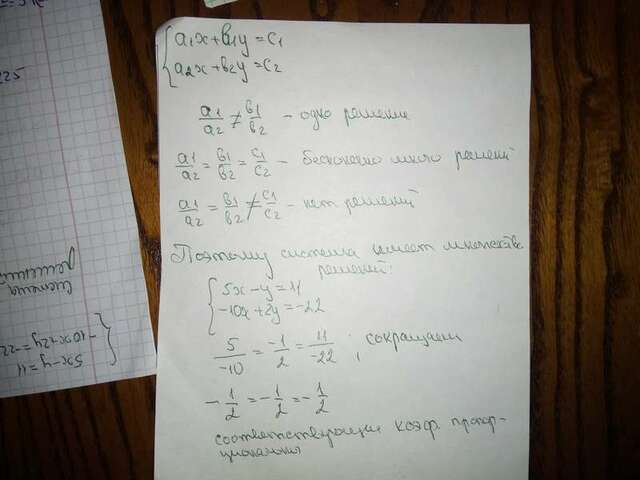 a₁x + b₁y = c₁
a₂x + b₂y = c₂
a₁/a₂ ≠ b₁/b₂ - одно решение
a₁/a₂ = b₁/b₂ = c₁/c₂ - бесконечно много решений
a₁/a₂ = b₁/b₂ ≠ c₁/c₂ - нет решений
Поэтому система имеет множество
решений:
5x - y = 11
-10x + 2y = -22
5/-10 = -1/2 = 11/-22 ; сокращаем
-1/2 = -1/2 = -1/2
соответствующии коэф. пропор-
циональны
225
Система
5x-y=11
-10x+2y=-22